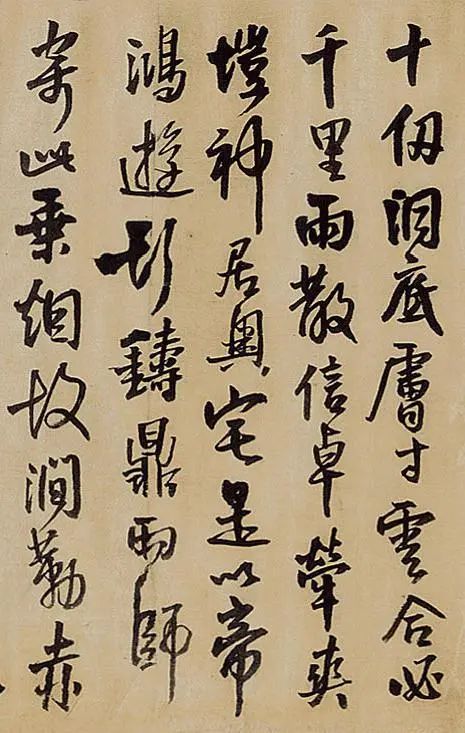 十仞洞底膚寸雲合必
千里雨散信卓犖爽
塏神居奧宅是以帝
鴻遊斯鑄鼎雨師
寄此乘烟故澗勒赤